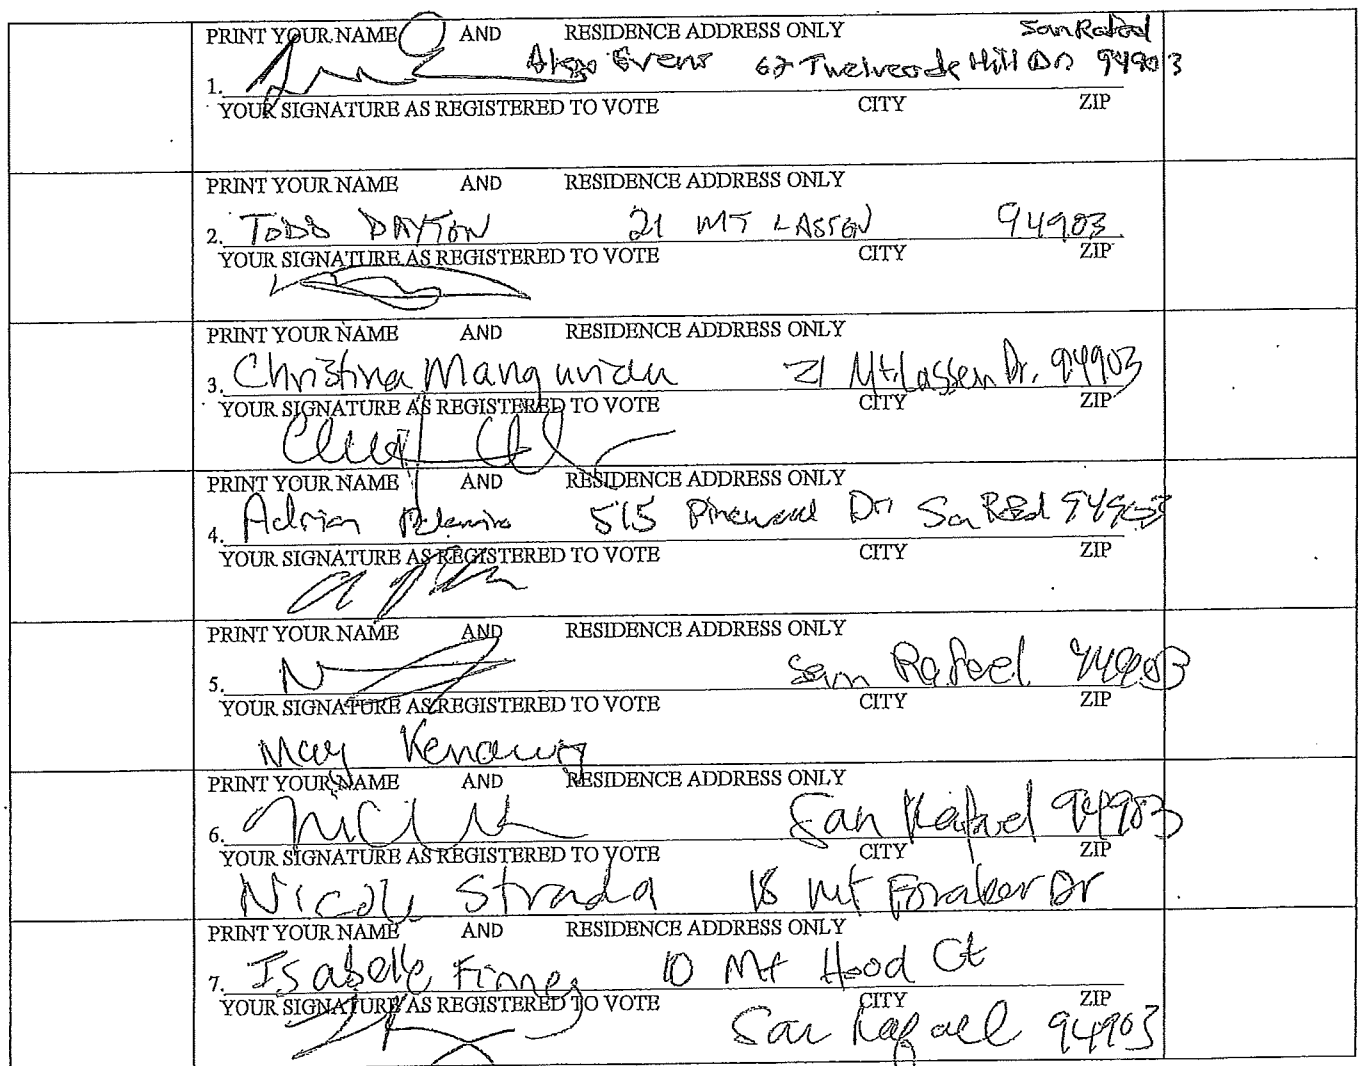 PRINT YOUR NAME AND RESIDENCE ADDRESS ONLY San Rafael
Evens 62 Hill Dr 94903
1.
YOUR SIGNATURE AS REGISTERED TO VOTE CITY ZIP
PRINT YOUR NAME AND RESIDENCE ADDRESS ONLY
2. TODD DAYTON 21 MT LASSEN 94903
YOUR SIGNATURE AS REGISTERED TO VOTE CITY ZIP
PRINT YOUR NAME AND RESIDENCE ADDRESS ONLY
3. Christina 21 Mt. Lassen Dr. 94903
YOUR SIGNATURE AS REGISTERED TO VOTE CITY ZIP
PRINT YOUR NAME AND RESIDENCE ADDRESS ONLY
4. Adrian 515 Pinewood Dr 94903
YOUR SIGNATURE AS REGISTERED TO VOTE CITY ZIP
PRINT YOUR NAME AND RESIDENCE ADDRESS ONLY
5. San Rafael 94903
YOUR SIGNATURE AS REGISTERED TO VOTE CITY ZIP
May Kenawy
PRINT YOUR NAME AND RESIDENCE ADDRESS ONLY
6. San Rafael 94903
YOUR SIGNATURE AS REGISTERED TO VOTE CITY ZIP
Nicole Strada 18 Mt Foraker Dr
PRINT YOUR NAME AND RESIDENCE ADDRESS ONLY
7. Isabelle 10 Mt Hood Ct
YOUR SIGNATURE AS REGISTERED TO VOTE CITY ZIP
San Rafael 94903